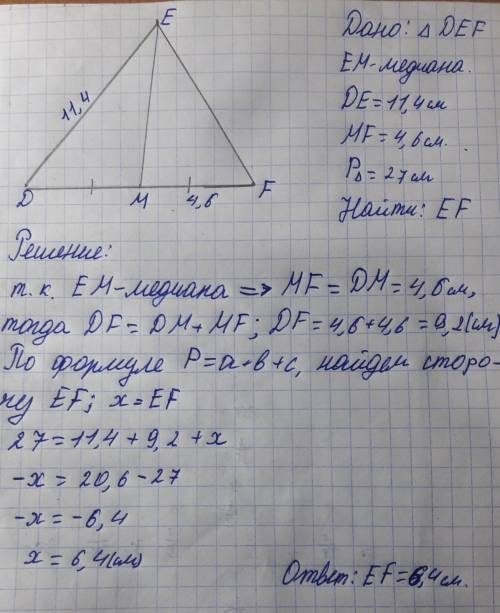 E
11,4
D
M
4,6
F
Дано: △ DEF
EM-медиана.
DE = 11,4 см
MF = 4,6 см.
P△ = 27 см
Найти: EF
Решение:
т. к. EM-медиана => MF = DM = 4,6 см,
тогда DF = DM + MF; DF = 4,6 + 4,6 = 9,2 (см)
По формуле P = a + b + c, найдем сторо-
ну EF; x = EF
27 = 11,4 + 9,2 + x
-x = 20,6 - 27
-x = -6,4
x = 6,4 (см)
Ответ: EF = 6,4 см.